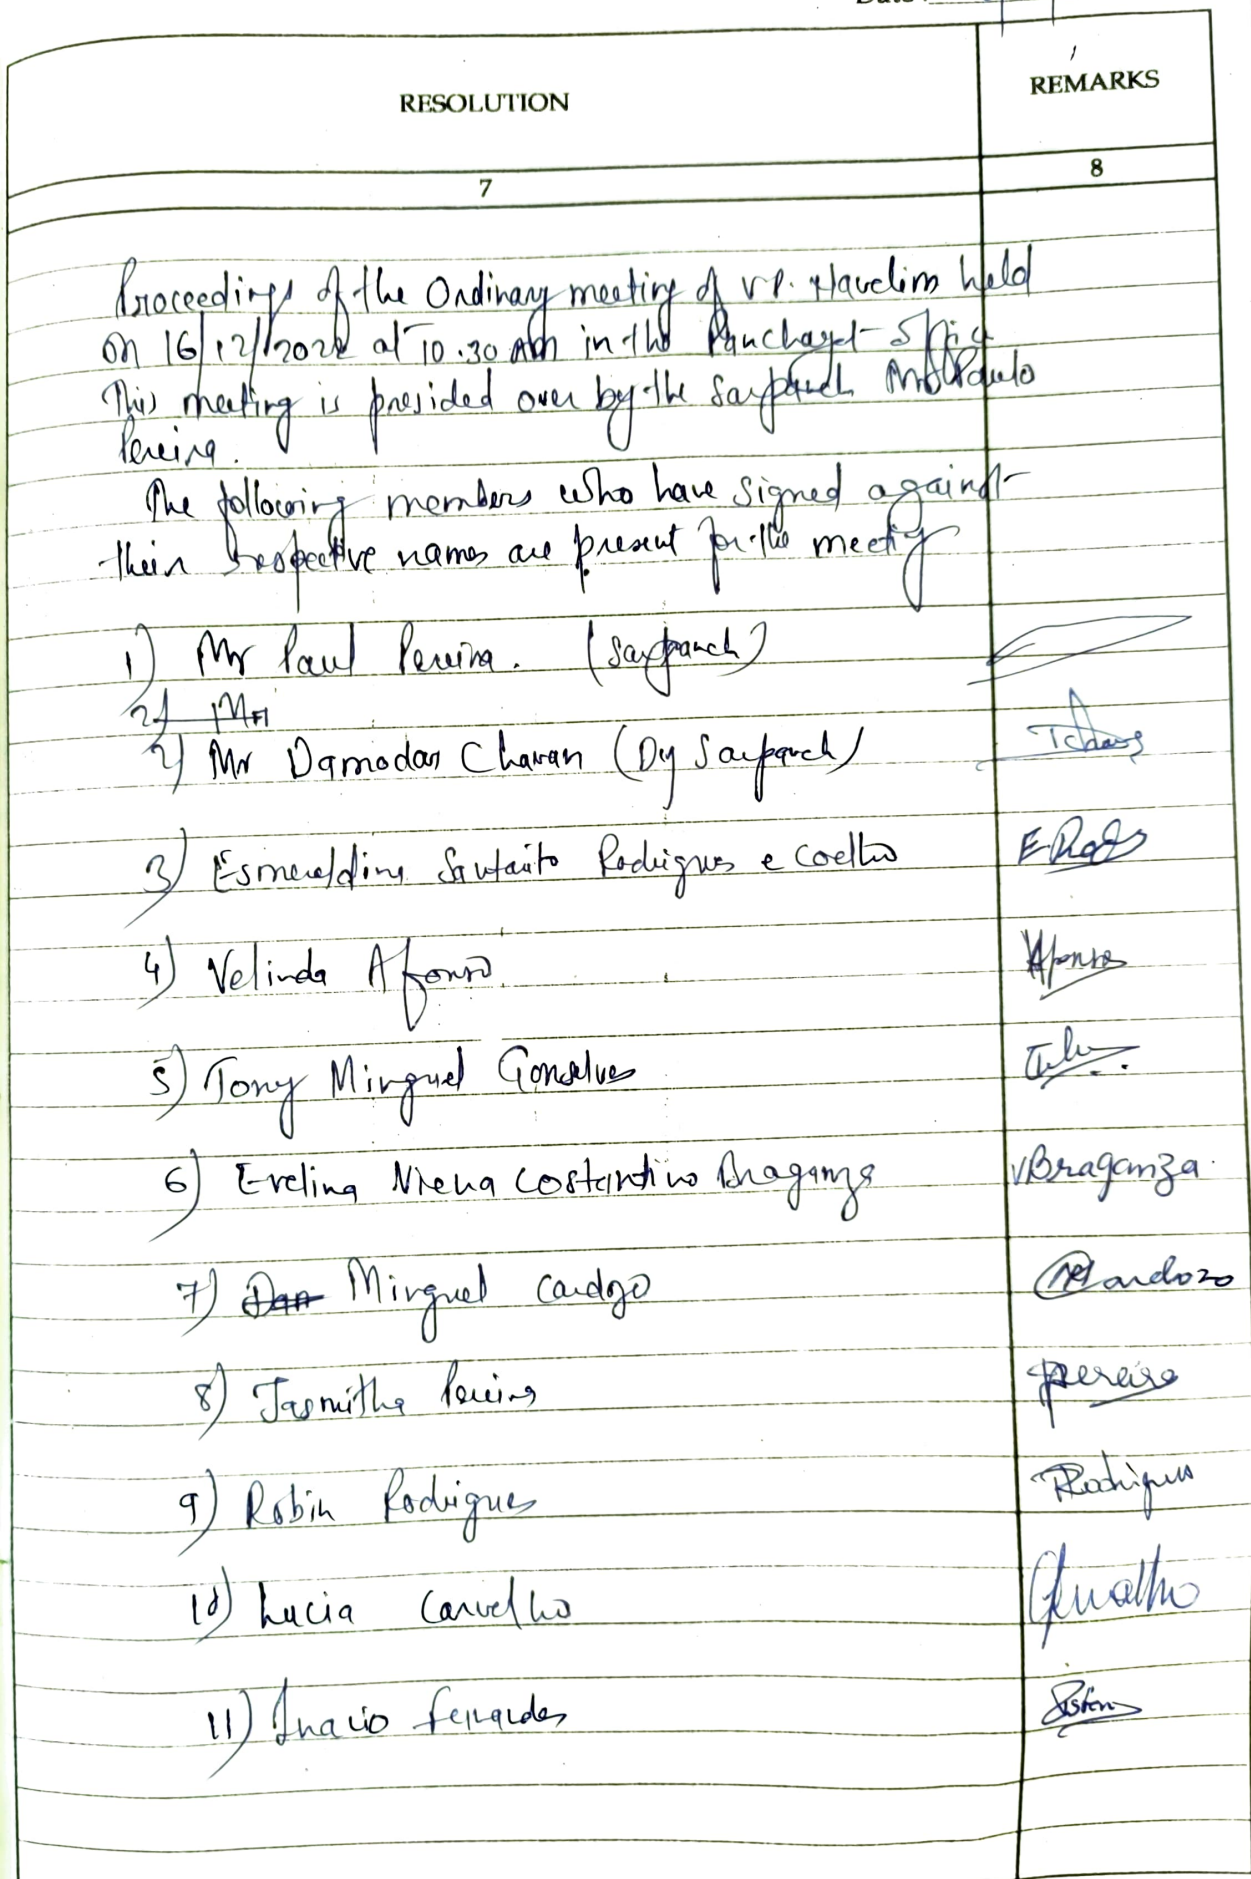 Date
RESOLUTION
REMARKS
7
8
Proceedings of the Ordinary meeting of V.P. Navelim held
on 16/12/2022 at 10.30 AM in the Panchayat Office
This meeting is presided over by the Sarpanch Mr Paulo
Pereira.
The following members who have signed against
their respective names are present for the meeting
1) Mr Paul Pereira. (Sarpanch)
2) Mr
2) Mr Damodar Chavan (Dy Sarpanch)
3) Esmeraldina Rodrigues e Coelho
E Rods
4) Velinda Afonso
Afonso
5) Tony Minguel Gonsalves
6) Evelina Costantino Braganza
VBraganza.
7) Dan Minguel Cardozo
Cardozo
8) Jasmitha Pereira
Pereira
9) Robin Rodrigues
Rodrigues
10) Lucia Carvelho
11) Inacio Fernandes